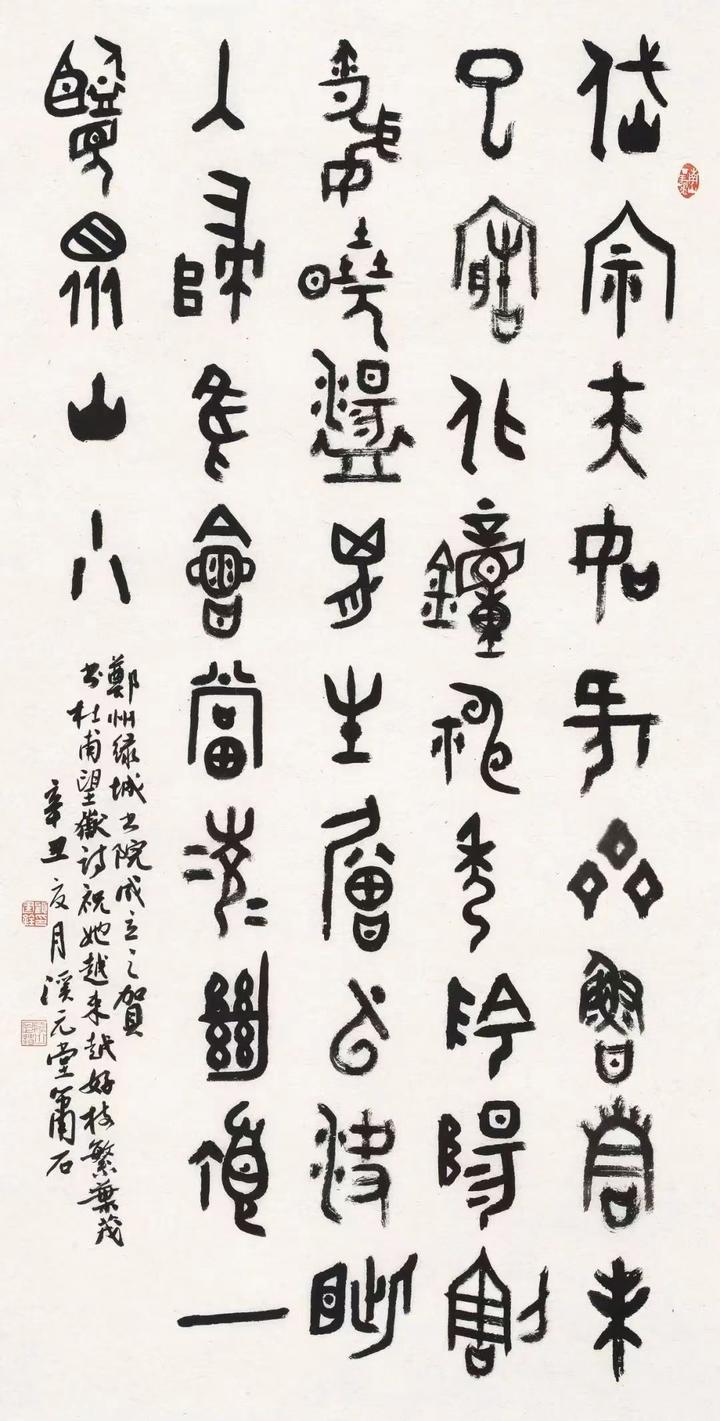 岱宗夫如何齊魯青未
了造化鐘神秀陰陽割
昏曉盪匈生層云決眥
入歸鳥會當凌絕頂一
覽眾山小
鄭州绿城书院成立之賀
书杜甫望嶽诗祝她越来越好枝繁葉茂
辛丑夏月溪元堂石